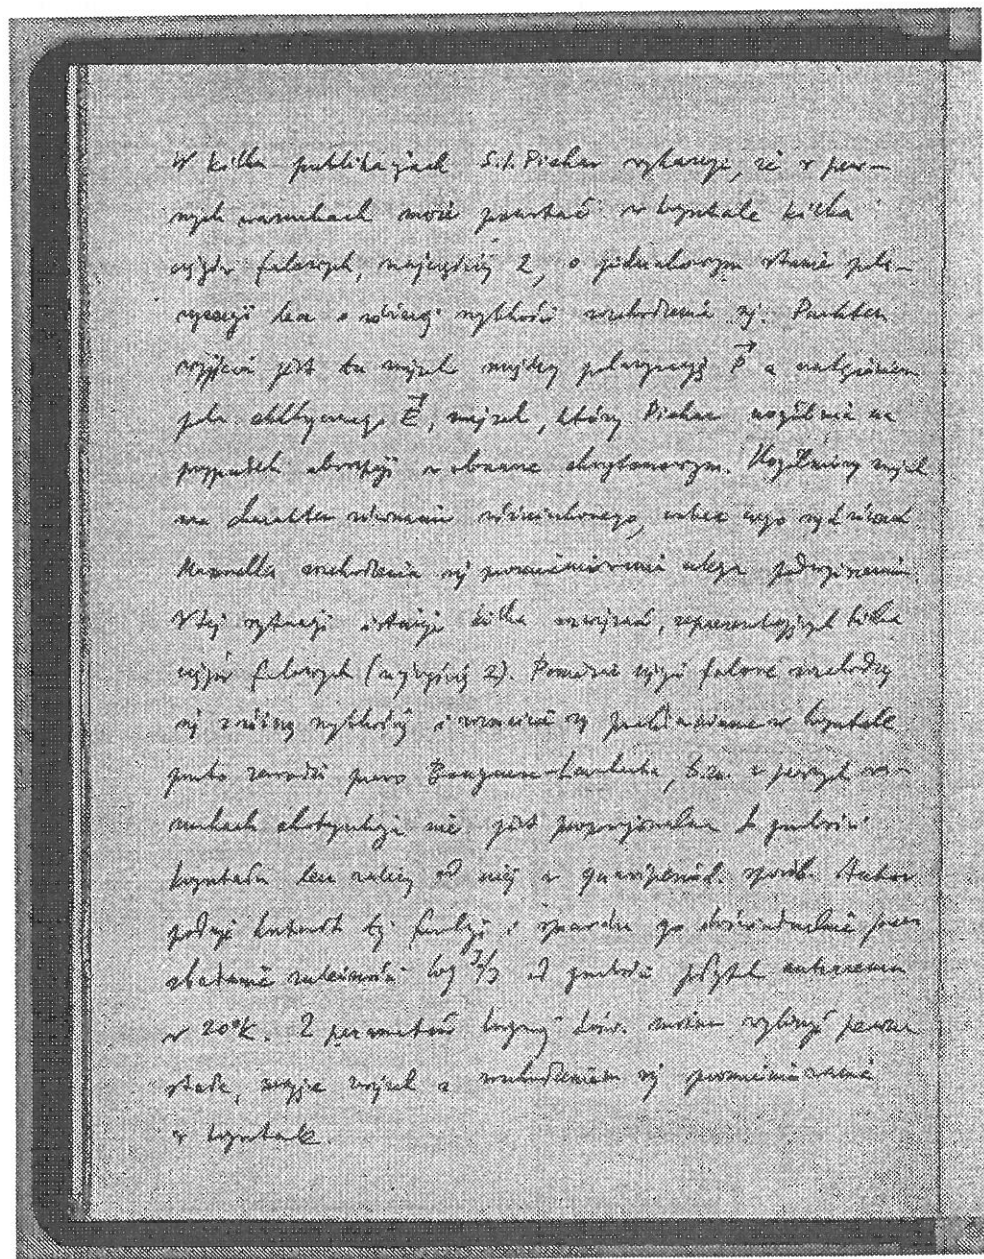 W kilku publikacjach S.I. Piekar wykazuje, że w pew-
nych warunkach może powstać w krysztale kilka
wiązek falowych, najczęściej 2, o jednakowym stanie pola-
ryzacji lecz o różnej szybkości rozchodzenia się. Punktem
wyjścia jest tu związek między polaryzacją P⃗ a natężeniem
pola elektrycznego E⃗, związek, który Piekar uogólnia na
przypadek absorpcji w obszarze ekscytonowym. Uogólniony związek
ma charakter równania różniczkowego, wobec czego
Maxwella rozchodzenia się promieniowania ulega
W tej sytuacji istnieje kilka rozwiązań, reprezentujących kilka
wiązek falowych (najczęściej 2). Ponieważ wiązki falowe rozchodzą
się z różną szybkością i w krysztale
prawo Bouguera-Lamberta, t.zn. w pewnych wa-
runkach ekstynkcja nie jest proporcjonalna do grubości
kryształu lecz zależy od niej w sposób. Autor
podaje kształt tej funkcji i sprawdza go doświadczalnie przez
zbadanie zależności log J/J od grubości płytek antracenu
w 20°K. Z parametrów krzywej dośw. można wyliczyć pewne
stałe, mające związek z rozchodzeniem się promieniowania
w krysztale.